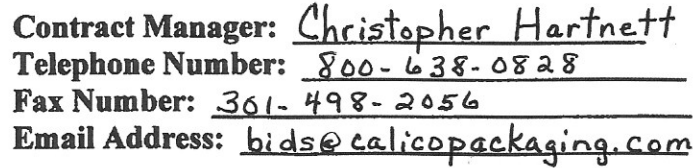 Contract Manager: Christopher Hartnett
Telephone Number: 800-638-0828
Fax Number: 301-498-2056
Email Address: bids@calicopackaging.com